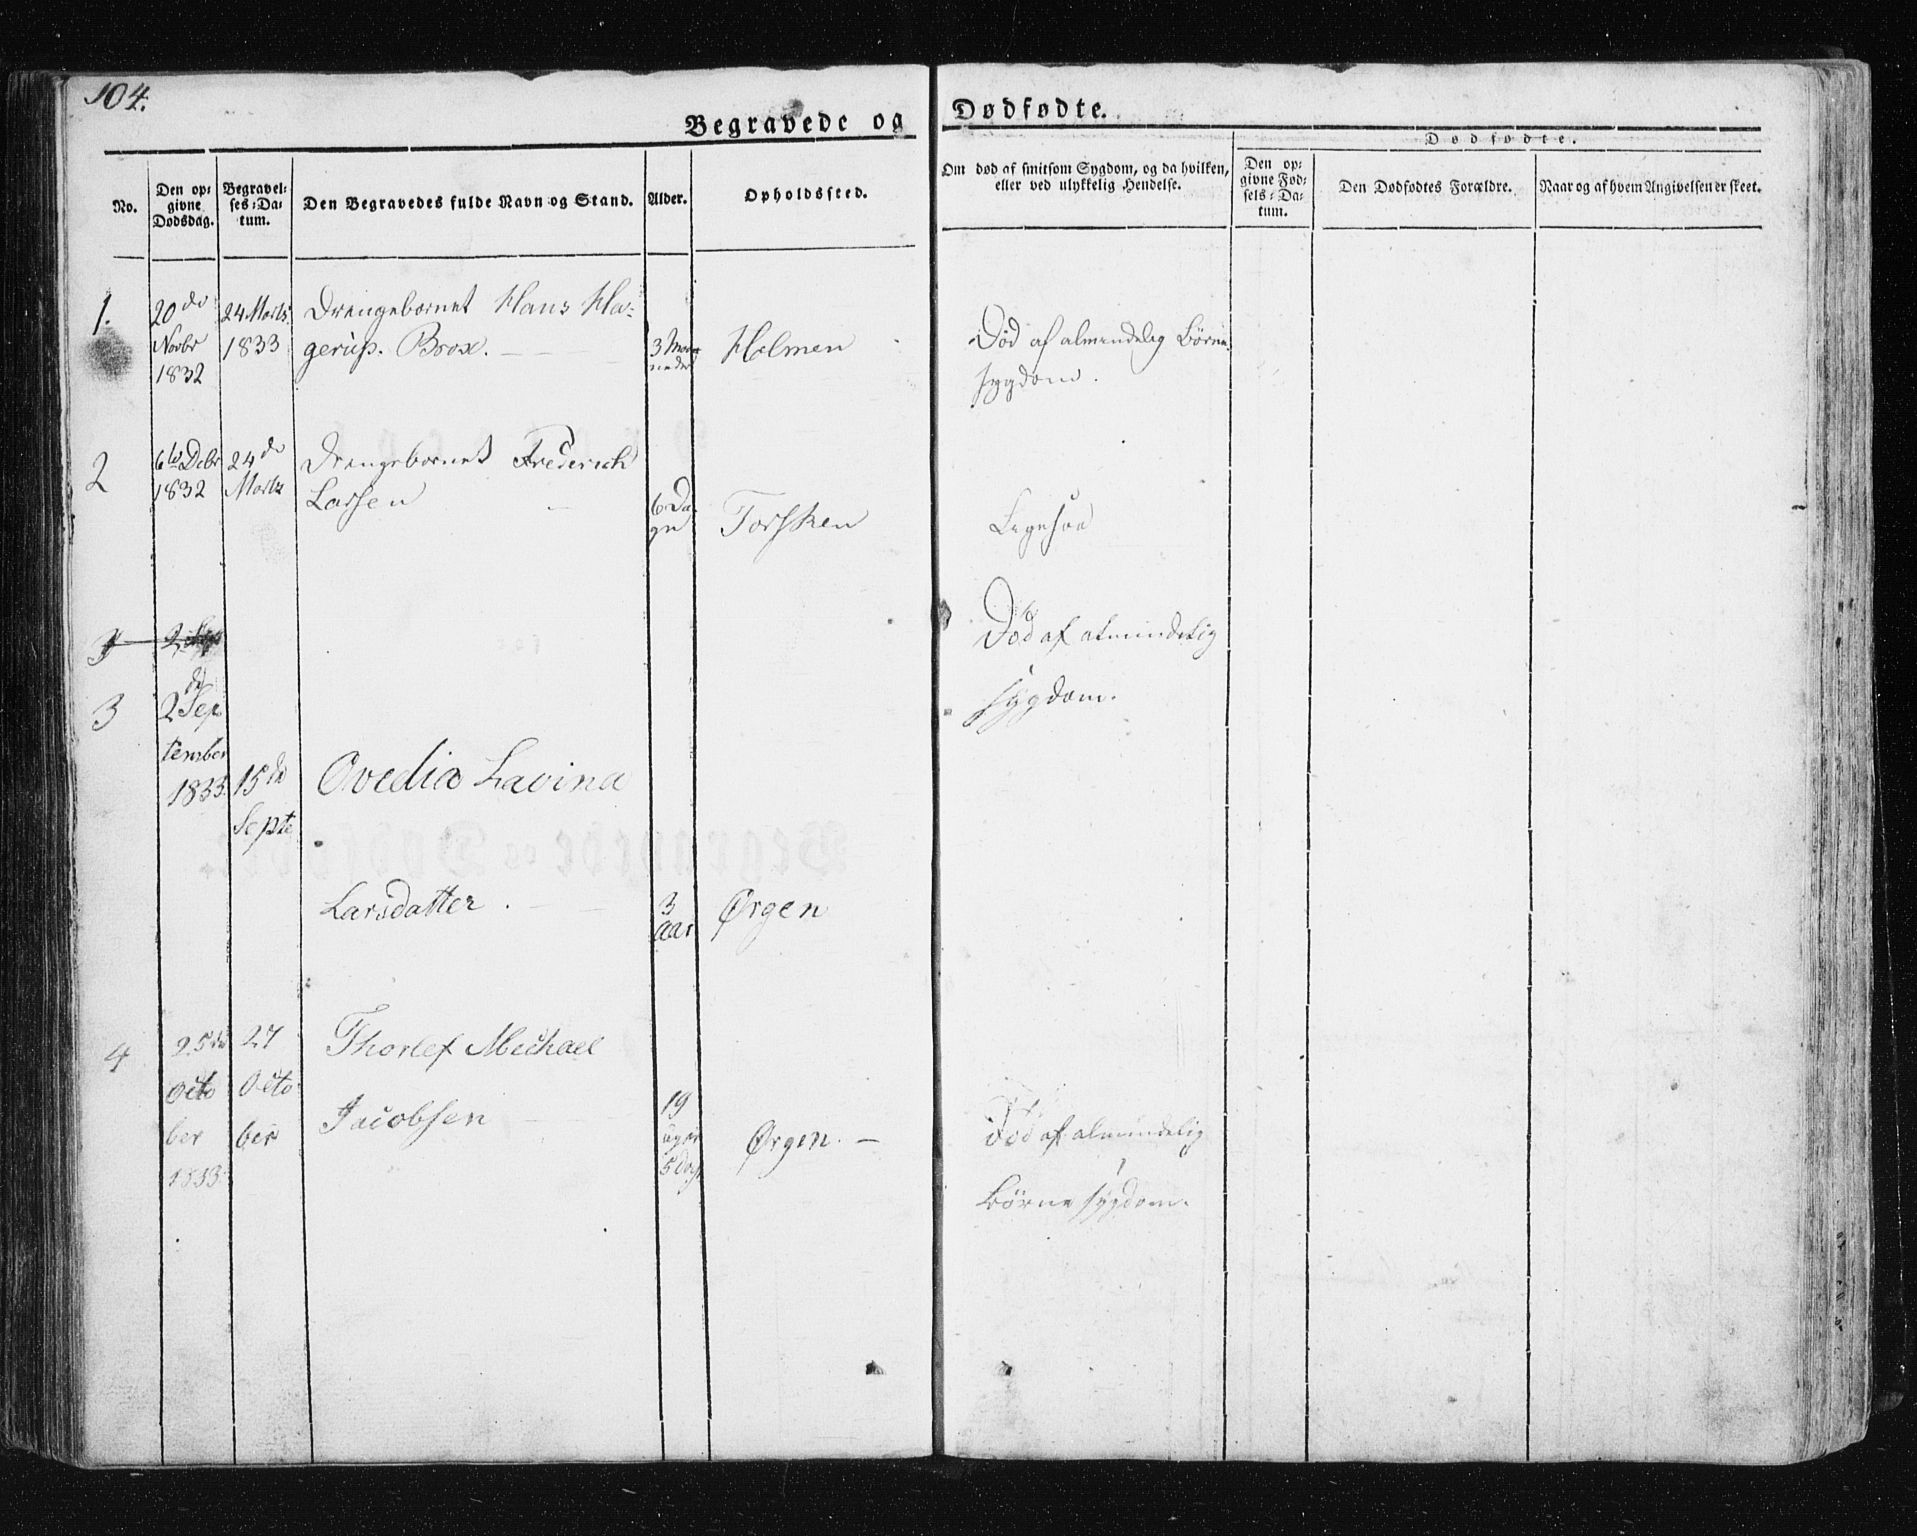 104.
Begravede og Dødfødte.
No.
Den op-
givne
Dødsdag.
Begravel-
ses-Da-
tum.
Den Begravedes fulde Navn og Stand.
Alder.
Opholdssted.
Om død af smitsom Sygdom, og da hvilken,
eller ved ulykkelig Hendelse.
Dødfødte.
Den op-
givne Fød-
sels-Da-
tum.
Den Dødfødtes Forældre.
Naar og af hvem Angivelsen er skeet.
1.
20de
Novbr
1832
24 Marts
1833
Drengebarnet Hans Ha-
gerup. Brox.
3 Maa-
neder
Helmen
Død af almindelig Børne-
sygdom.
2
6te Debr
1832
24de
Marts
Drengebarnet Frederich
Larsen
6 Da-
ge
Torsken
Ligesaa
3
2 Sep
3
2de Sep
tember
1833.
15de
Septe
Ovedia Lavina
Larsdatter.
3
Aar
Ørgen
Død af almindelig
sygdom.
4
25de
Octo
ber
1833
27
Octo
ber
Thorlef Michael
Jacobsen
19
uger
5 Dag
Ørgen.
Død af almindelig
Børne sygdom.